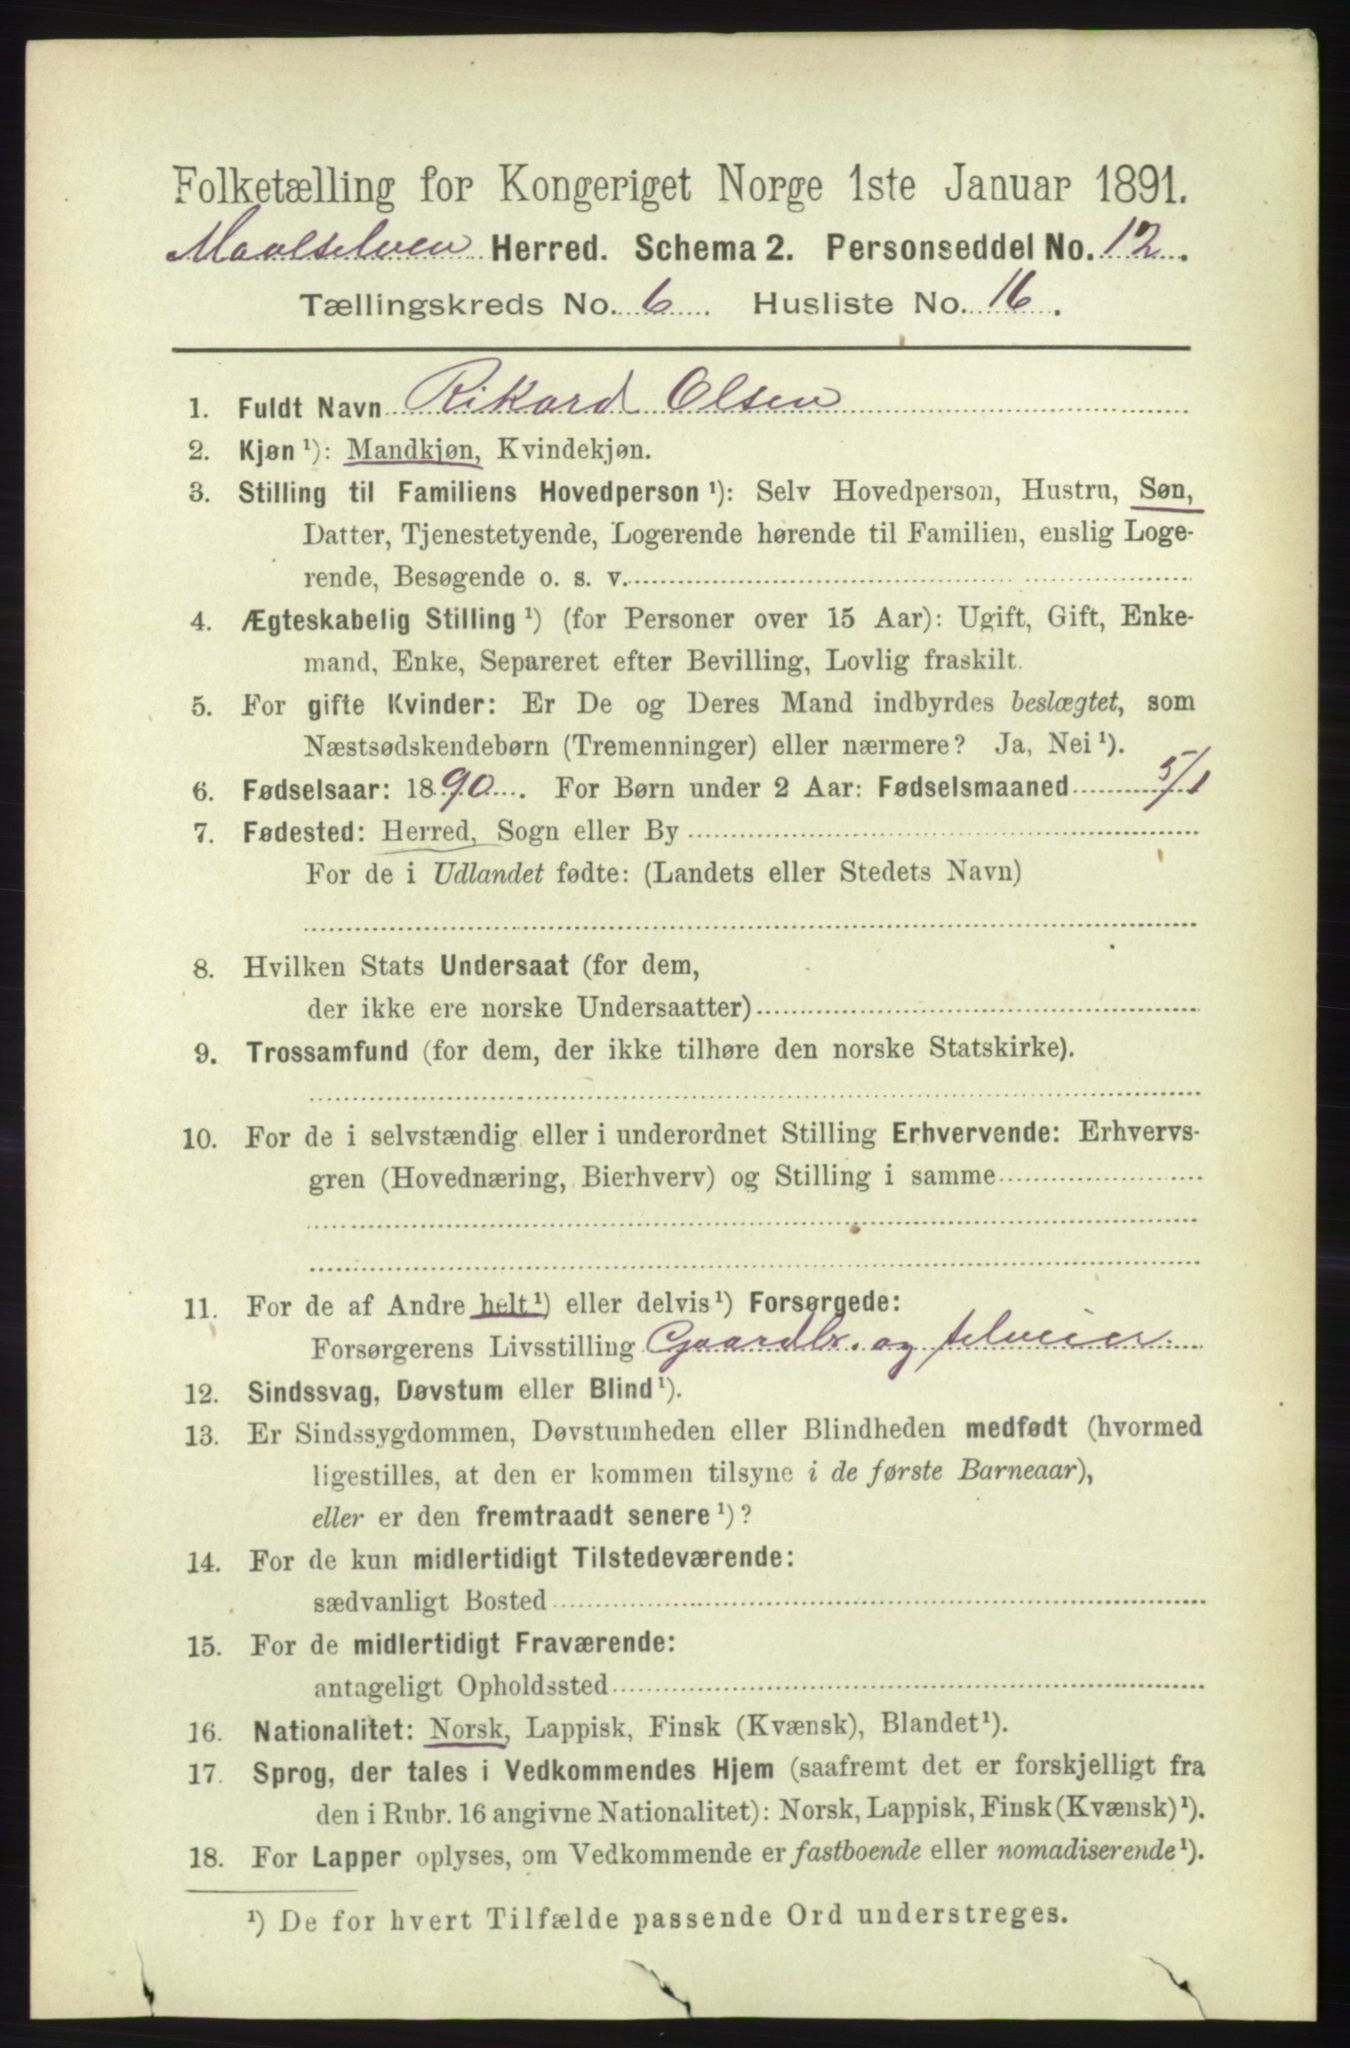 Folketælling for Kongeriget Norge 1ste Januar 1891.
Maalselven Herred. Schema 2. Personseddel No. 12.
Tællingskreds No. 6. Husliste No. 16.
1. Fuldt Navn Rikard Olsen
2. Kjøn ¹): Mandkjøn, Kvindekjøn.
3. Stilling til Familiens Hovedperson ¹): Selv Hovedperson, Hustru, Søn,
Datter, Tjenestetyende, Logerende hørende til Familien, enslig Loge-
rende, Besøgende o. s. v.
4. Ægteskabelig Stilling ¹) (for Personer over 15 Aar): Ugift, Gift, Enke-
mand, Enke, Separeret efter Bevilling, Lovlig fraskilt.
5. For gifte Kvinder: Er De og Deres Mand indbyrdes beslægtet, som
Næstsødskendebørn (Tremenninger) eller nærmere? Ja, Nei ¹).
6. Fødselsaar: 1890. For Børn under 2 Aar: Fødselsmaaned 5/1
7. Fødested: Herred, Sogn eller By
For de i Udlandet fødte: (Landets eller Stedets Navn)
8. Hvilken Stats Undersaat (for dem,
der ikke ere norske Undersaatter)
9. Trossamfund (for dem, der ikke tilhøre den norske Statskirke).
10. For de i selvstændig eller i underordnet Stilling Erhvervende: Erhvervs-
gren (Hovednæring, Bierhverv) og Stilling i samme
11. For de af Andre helt ¹) eller delvis ¹) Forsørgede:
Forsørgerens Livsstilling Gaardbr. og selveier
12. Sindssvag, Døvstum eller Blind ¹).
13. Er Sindssygdommen, Døvstumheden eller Blindheden medfødt (hvormed
ligestilles, at den er kommen tilsyne i de første Barneaar),
eller er den fremtraadt senere ¹)?
14. For de kun midlertidigt Tilstedeværende:
sædvanligt Bosted
15. For de midlertidigt Fraværende:
antageligt Opholdssted
16. Nationalitet: Norsk, Lappisk, Finsk (Kvænsk), Blandet ¹).
17. Sprog, der tales i Vedkommendes Hjem (saafremt det er forskjelligt fra
den i Rubr. 16 angivne Nationalitet): Norsk, Lappisk, Finsk (Kvænsk) ¹).
18. For Lapper oplyses, om Vedkommende er fastboende eller nomadiserende ¹).
¹) De for hvert Tilfælde passende Ord understreges.